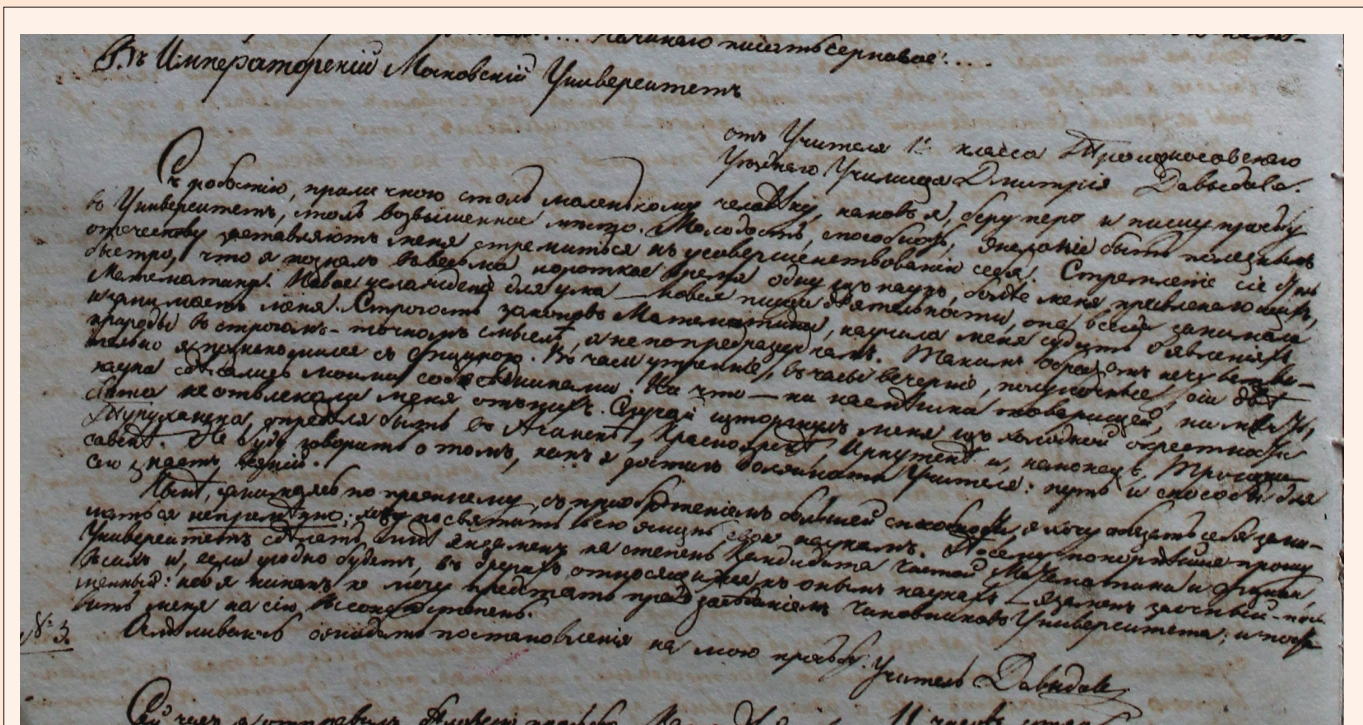 Начинаю писать черновое:....
Въ Императорскій Московскій Университетъ
отъ Учителя 1го класса Троицкосавскаго
Уѣзднаго Училища Дмитрія Давыдова.
Съ робостію, приличною столь маленькому человѣку, каковъ я, беру перо и пишу прозьбу
въ Университетъ, столь возвышенное мѣсто. Молодость, способность, желаніе быть полезнымъ
отечеству заставляютъ меня стремиться къ усовершенствованію себя. Стремленіе сіе
быстро, что я позналъ въ весьма короткое время одну изъ наукъ, болѣе меня
Математика. Новое услажденіе для ума – новая пища дѣятельности, она всегда занимала
и занимаетъ меня. Строгость законовъ Математики, научила меня судить о явленіяхъ
природы въ строгомъ – точномъ смыслѣ, а не по предразсудкамъ. Такимъ образомъ
я познакомился съ Физикою. Въ часы утренніе, въ часы вечерніе, полуночные, сіи двѣ
науки сдѣлались моими собесѣдниками. Ни что – ни насмѣшка товарищей, ни
не отвлекали меня отъ нихъ. Случай исторгнулъ меня изъ холодной окрестности
Туруханска, опредѣля быть въ Ачинскѣ, Красноярскѣ, Иркутскѣ и, наконецъ,
савскѣ. Не буду говорить о томъ, какъ я достигъ до званія Учителя: путь и способы для
сего знаетъ всякій.
Нынѣ, занимаясь по прежнему, съ пріобрѣтеніемъ большей способности, я хочу обязать себя зани-
маться непремѣнно; хочу посвятить всю жизнь свою наукамъ. Посему покорнѣйше прошу
Университетъ сдѣлать мнѣ экзаменъ на степень Кандидата чистой Математики и Физики
и, если угодно будетъ, въ другихъ относящихся къ онымъ наукахъ – экзаменъ заочный-
менный: ибо я никакъ не могу предстать предъ засѣданіемъ чиновниковъ Университета;
меня на сію, степень.
Осмѣливаюсь ожидать постановленія на мою прозьбу. Учитель Давыдовъ
№ 3.
Сей часъ я отправилъ